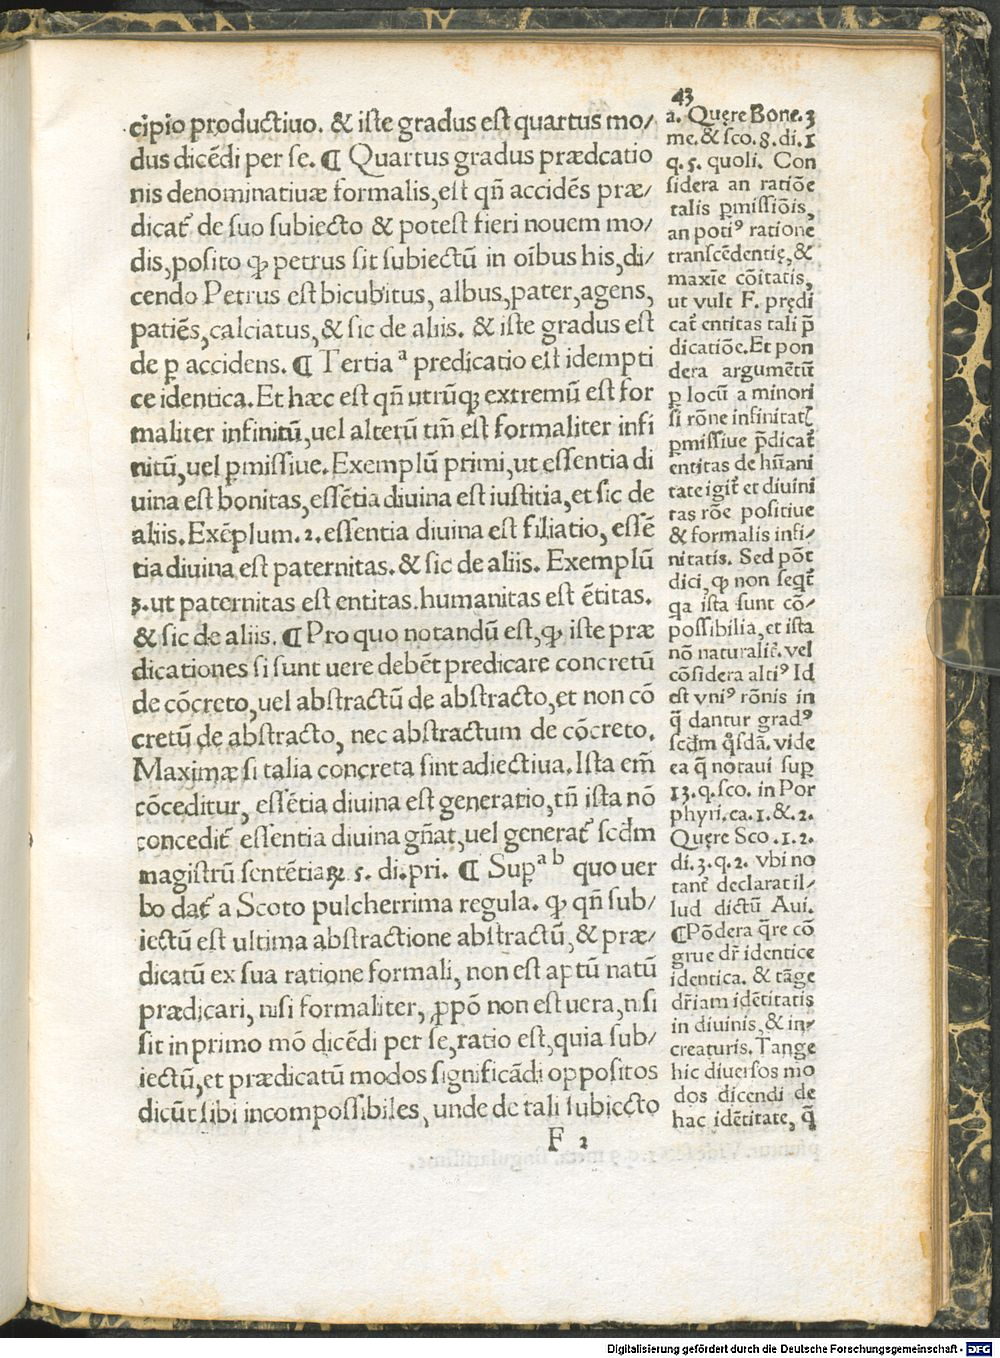 43
cipio productiuo. & iste gradus est quartus mo/
dus dicēdi per se. ¶ Quartus gradus prædcatio
nis denominatiuæ formalis, est qñ accidēs præ/
dicat̃ de suo subiecto & potest fieri nouem mo/
dis, posito ꝙ petrus sit subiectū in oībus his, di/
cendo Petrus est bicubitus, albus, pater, agens,
patiēs, calciatus, & sic de aliis. & iste gradus est
de ꝑ accidens. ¶ Tertia ᵃ predicatio est idempti
ce identica. Et hæc est qñ utrūqꝫ extremū est for
maliter infinitū, uel alterū tm̄ est formaliter infi
nitū, uel ꝑmissiue. Exemplū primi, ut essentia di
uina est bonitas, essētia diuina est iustitia, et sic de
aliis. Exēplum. 2. essentia diuina est filiatio, essē
tia diuina est paternitas. & sic de aliis. Exemplū
3. ut paternitas est entitas. humanitas est ētitas.
& sic de aliis. ¶ Pro quo notandū est, ꝙ iste præ
dicationes si sunt uere debēt predicare concretū
de cōcreto, uel abstractū de abstracto, et non cō
cretū de abstracto, nec abstractum de cōcreto.
Maximæ si talia concreta sint adiectiua. Ista em̄
cōceditur, essētia diuina est generatio, tñ ista nō
concedit̃ essentia diuina gñat, uel generat̃ scd̄m
magistrū sentētiaꝝ 5. di. pri. ¶ Suꝑ ᵃ ᵇ quo uer
bo dat̃ a Scoto pulcherrima regula. ꝙ qñ sub/
iectū est ultima abstractione abstractū, & præ/
dicatū ex sua ratione formali, non est aptū natū
prædicari, nisi formaliter, ꝓpō non est uera, nisi
sit in primo mō dicēdi per se, ratio est, quia sub/
iectū, et prædicatū modos significādi oppositos
dicūt sibi incompossibiles, unde de tali subiecto
F 2
a. Quęre Bone. 3
me. & sco. 8. di. 1
q. 5. quoli. Con
sidera an ratiōe
talis ꝑmissiōis,
an poti⁹ ratione
transcēdentię, &
maxīe cōitatis,
ut vult F. prędi
cat̃ entitas tali p̄
dicatiōe. Et pon
dera argumētū
ꝑ locū a minori
si rōne infinitatꝭ
ꝑmissiue p̄dicat̃
entitas de hūani
tate igit̃ et diuini
tas rōe positiue
& formalis infi/
nitatis. Sed pōt
dici, ꝙ non seqt̃
qa ista sunt cō/
possibilia, et ista
nō naturalit̃. vel
cōsidera alti⁹ Id
est vni⁹ rōnis in
q̄ dantur grad⁹
scd̄m qͥsdā. vide
ea q̄ notaui suꝑ
13. q. sco. in Por
phyri. ca. 1. &. 2.
Quęre Sco . 1. 2.
di. 3. q. 2. vbi no
tant̃ declarat il/
lud dictū Aui.
¶ Pōdera q̄re cō
grue dr̄ identice
identica. & tāge
dr̄iam idētitatis
in diuinis, & in/
creaturis. Tange
hic diuersos mo
dos dicendi de
hac idētitate, q̄
Digitalisierung gefördert durch die Deutsche Forschungsgemeinschaft - DFG